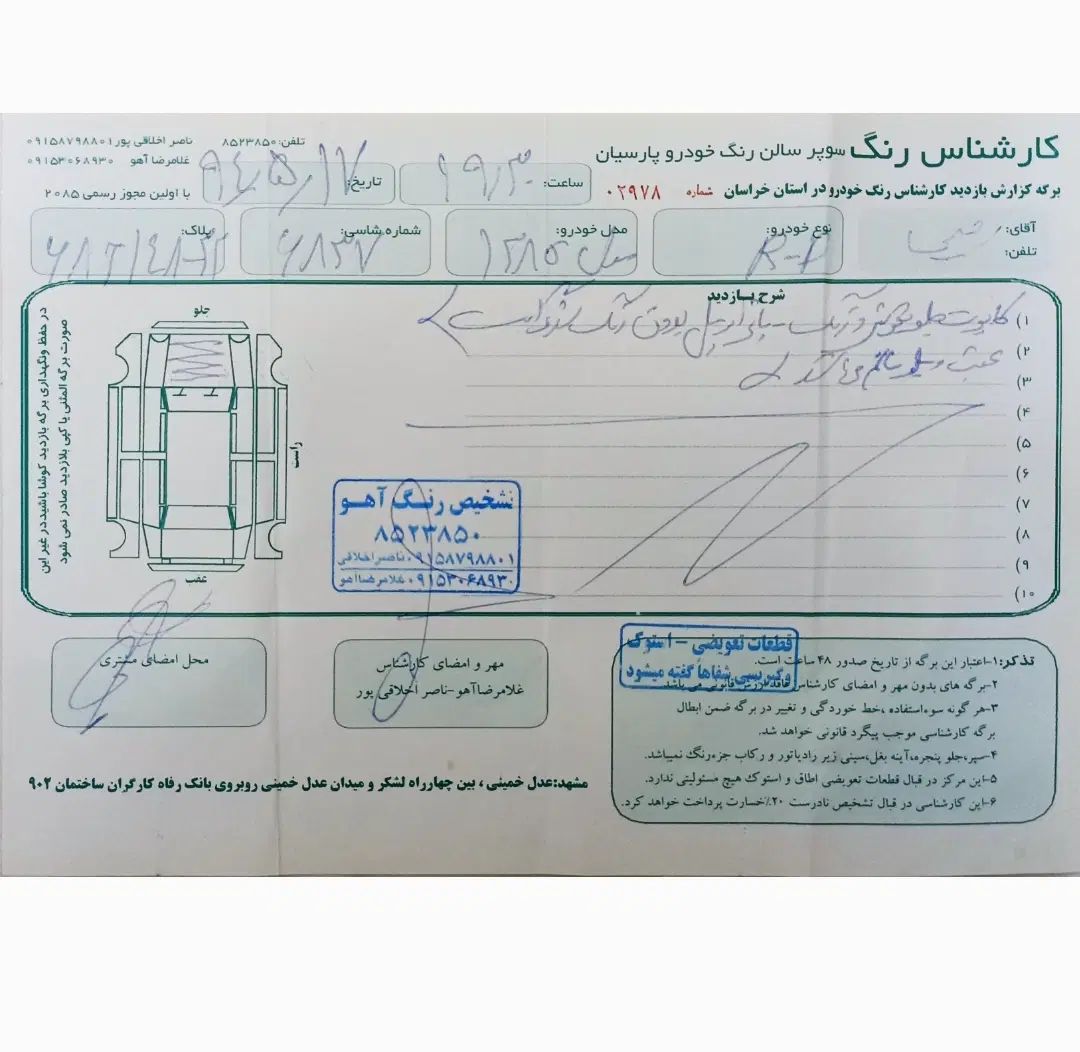 کارشناس رنگ سوپر سالن رنگ خودرو پارسیان
برگه گزارش بازدید کارشناس رنگ خودرو در استان خراسان شماره ۰۲۹۷۸
تلفن: ۸۵۲۳۸۵۰ ناصر اخلاقی پور ۰۹۱۵۸۷۹۸۸۰۱
غلامرضا آهو ۰۹۱۵۳۰۶۸۹۳۰
با اولین مجوز رسمی ۲۰۸۵
ساعت: ۱۹/۳۰
تاریخ: ۹۴/۵/۱۷
آقای:
تلفن:
نوع خودرو:
مدل خودرو: مدل ۱۳۸۵
شماره شاسی: ۶۸۳۷
پلاک:
شرح بازدید
۱)
۲)
۳)
۴)
۵)
۶)
۷)
۸)
۹)
۱۰)
جلو
راست
عقب
در حفظ ونگهداری برگه بازدید کوشا باشید در غیر این
صورت برگه المثنی یا کپی بازدید صادر نمی شود
تشخیص رنگ آهو
۸۵۲۳۸۵۰
۰۹۱۵۸۷۹۸۸۰۱ ناصر اخلاقی
۰۹۱۵۳۰۶۸۹۳۰ غلامرضا آهو
قطعات تعویضی - استوک
وگیربسی شفاهاً گفته میشود
محل امضای مشتری
مهر و امضای کارشناس
غلامرضا آهو-ناصر اخلاقی پور
تذکر: ۱-اعتبار این برگه از تاریخ صدور ۴۸ ساعت است.
۲-برگه های بدون مهر و امضای کارشناس فاقد ارزش قانونی می باشد
۳-هر گونه سوء استفاده ،خط خوردگی و تغییر در برگه ضمن ابطال
برگه کارشناسی موجب پیگرد قانونی خواهد شد.
۴-سپر،جلو پنجره،آینه بغل،سینی زیر رادیاتور و رکاب جزء رنگ نمیباشد.
۵-این مرکز در قبال قطعات تعویضی اطاق و استوک هیچ مسئولیتی ندارد.
۶-این کارشناسی در قبال تشخیص نادرست ۲۰٪ خسارت پرداخت خواهد کرد.
مشهد: عدل خمینی ، بین چهارراه لشکر و میدان عدل خمینی روبروی بانک رفاه کارگران ساختمان ۹۰۲